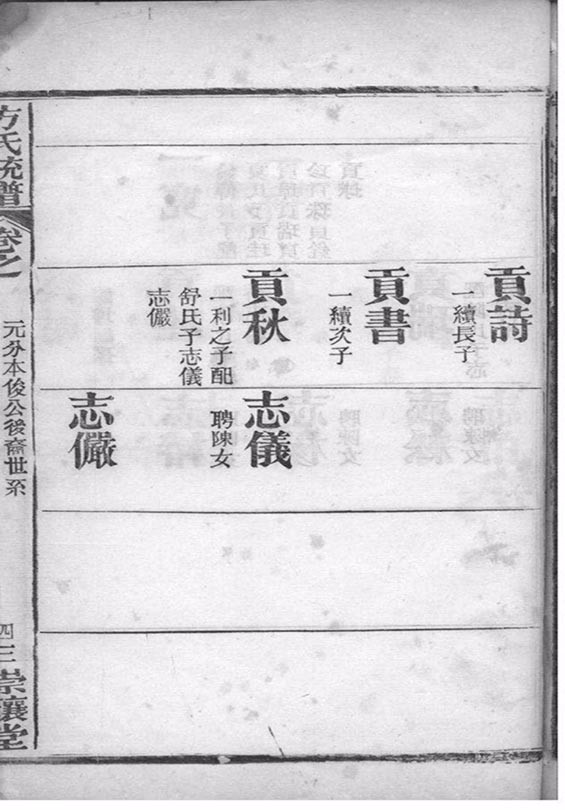 貢詩
一續長子
貢書
一續次子
貢秋
一利之子配
舒氏子志儀
志儼
志儀
聘陳女
志儼
方氏統譜
卷之
元分本俊公後裔世系
四三
崇禳堂